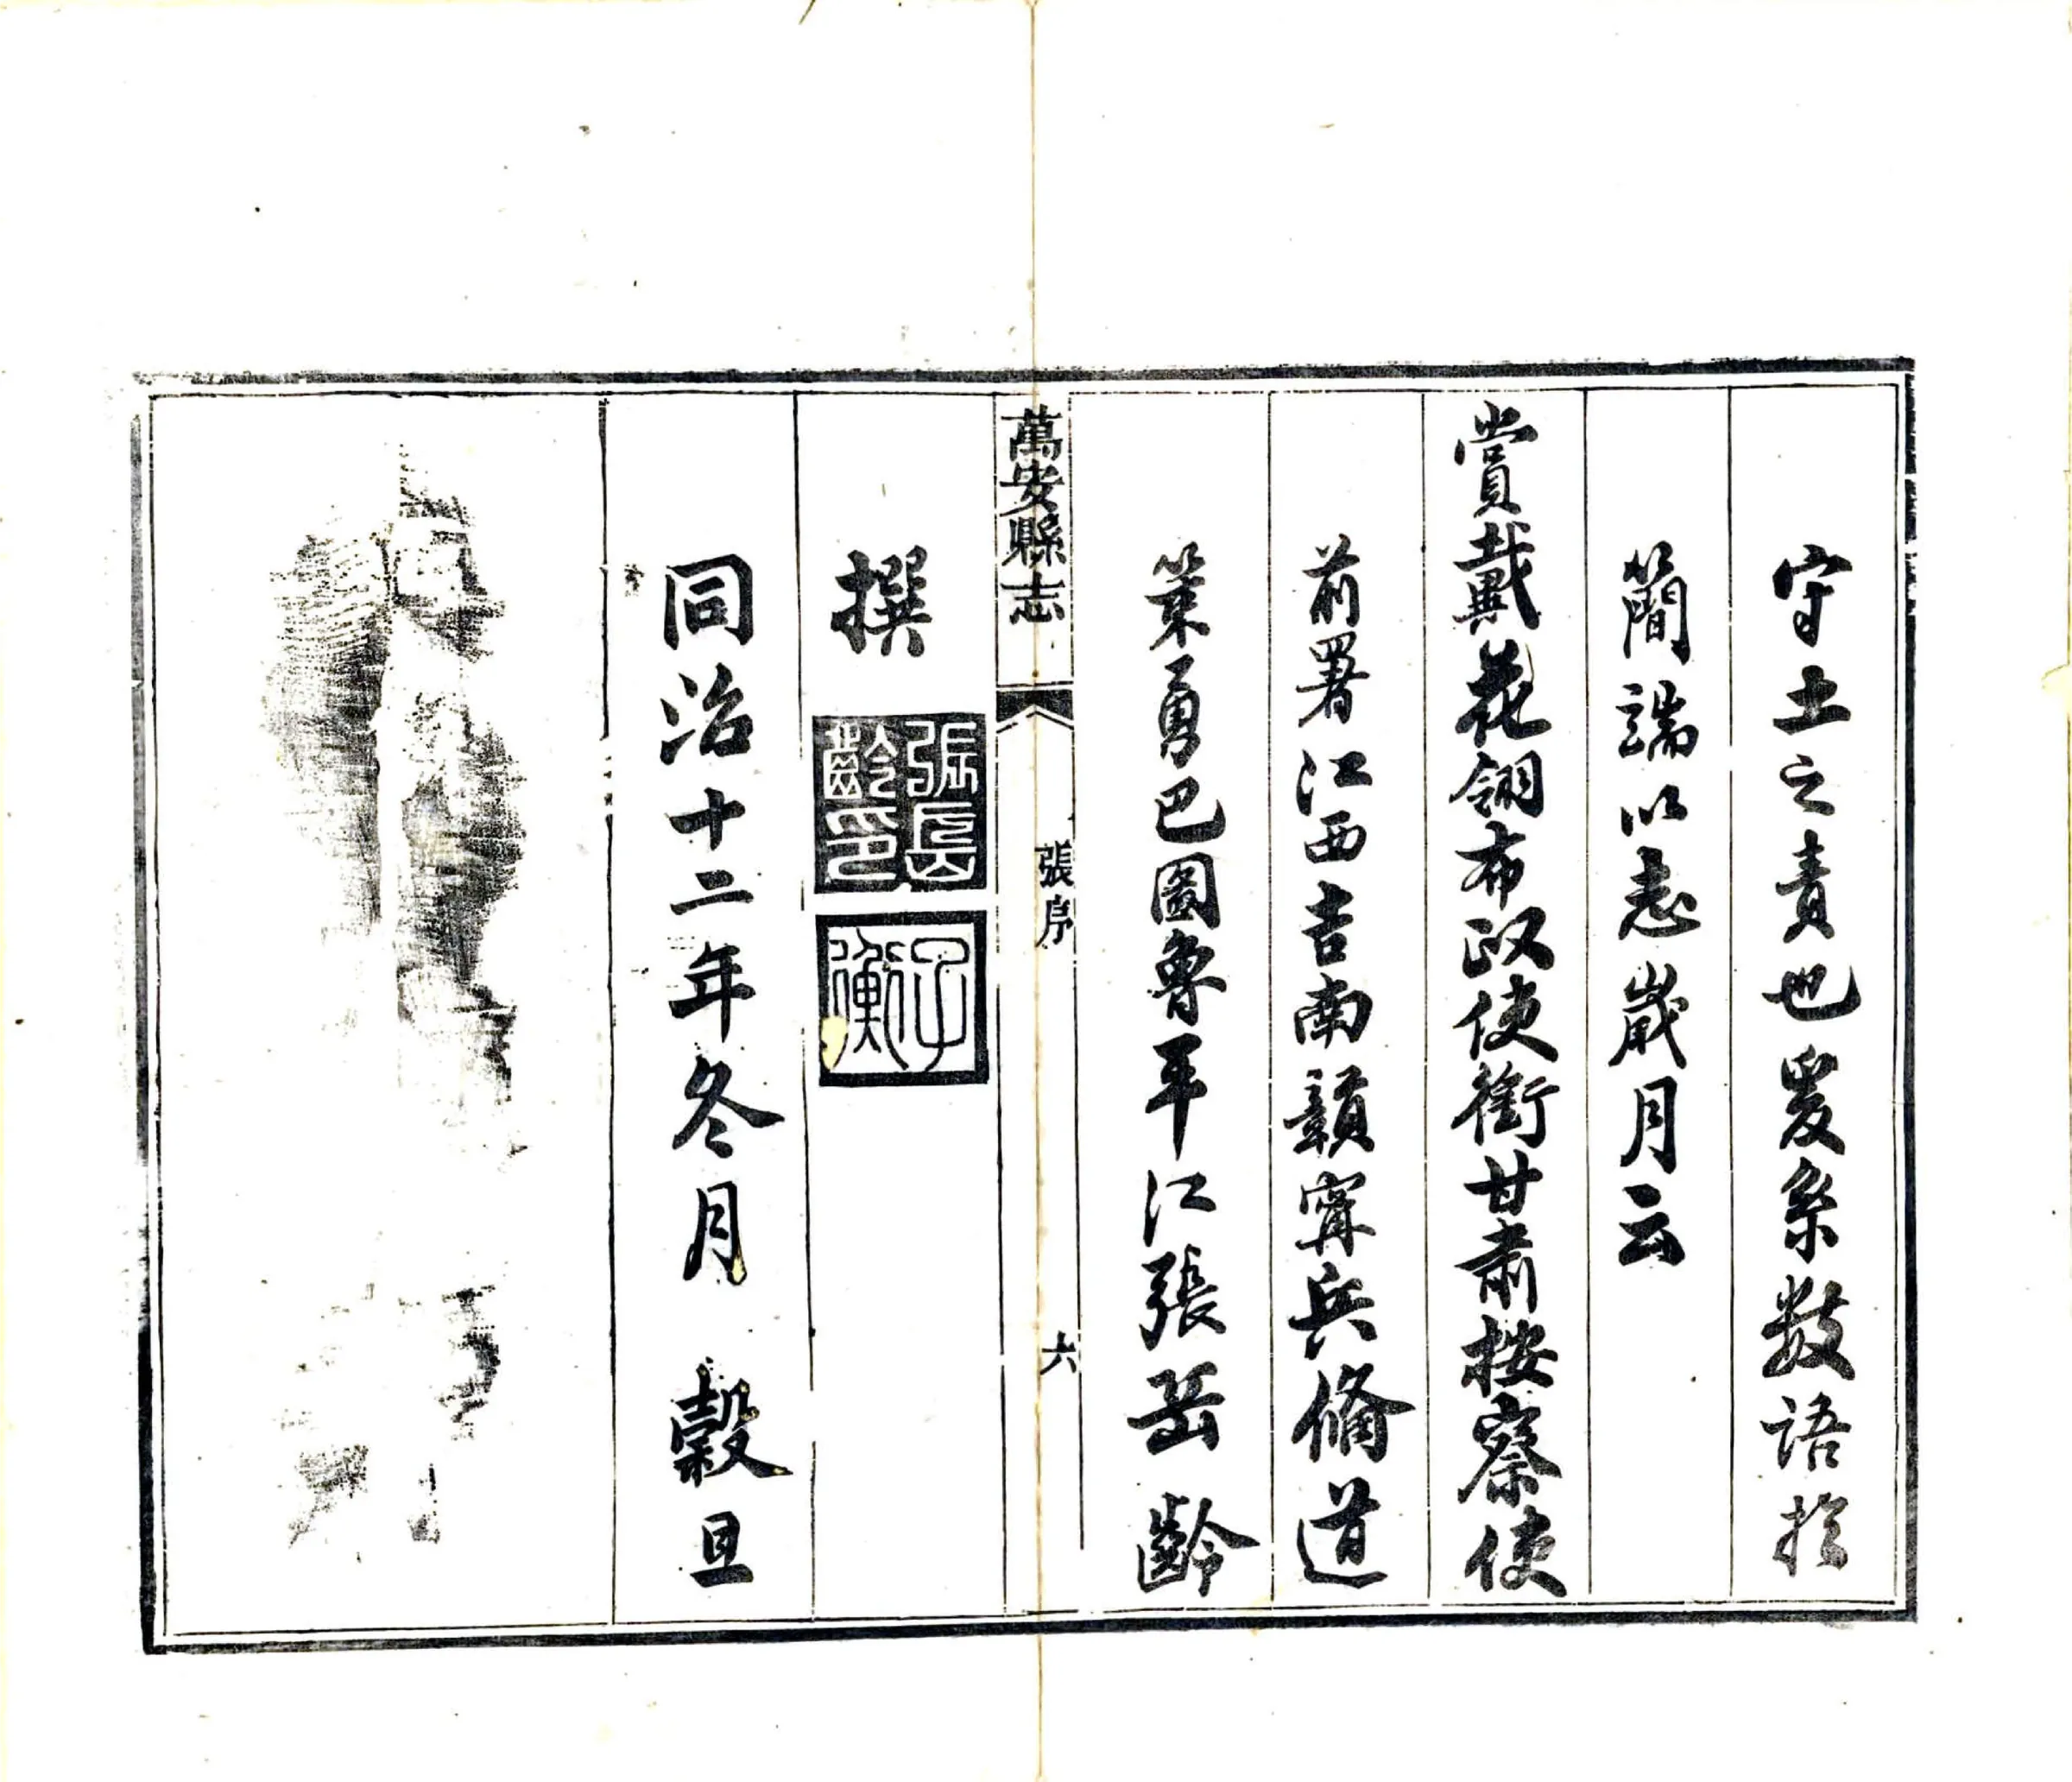 守土之責也爰系數語於
簡端以志歲月云
賞戴花翎布政使銜甘肅按察使
前署江西吉南贛甯兵備道
策勇巴圖魯平江張岳齡
萬安縣志
張序
六
撰
張岳齡印
子衡
同治十二年冬月 穀旦